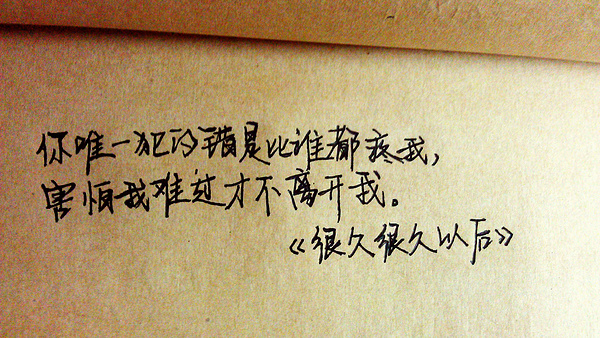 你唯一犯的错是比谁都疼我，
害怕我难过才不离开我。
《很久很久以后》